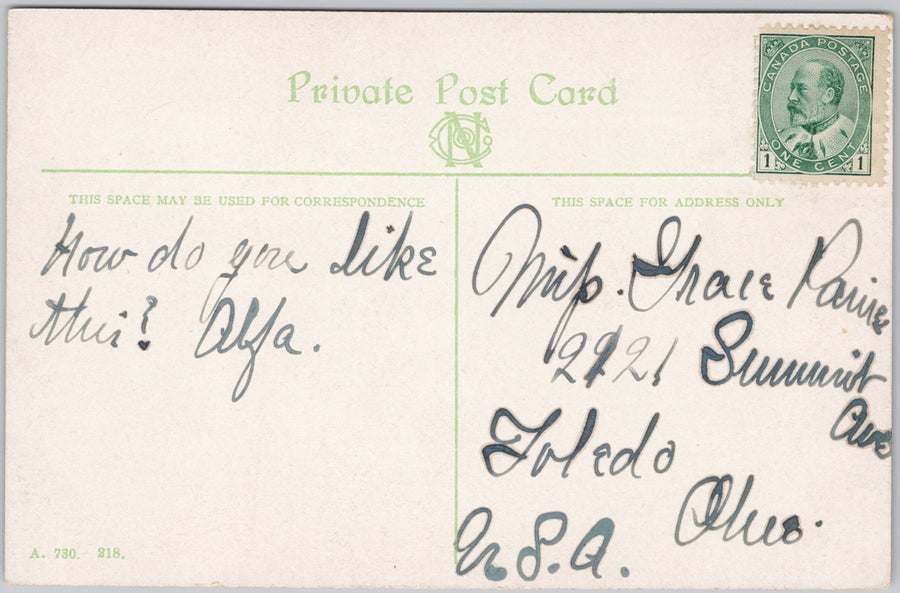 Private Post Card
CANADA POSTAGE
ONE CENT
1 1
THIS SPACE MAY BE USED FOR CORRESPONDENCE
How do you like
this? Alfa.
THIS SPACE FOR ADDRESS ONLY
Miss. Grace
Summit
Ave
Toledo
Ohio.
U.S.A.
A. 730. 218.